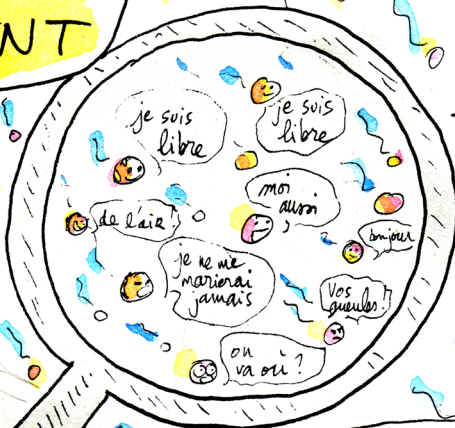 NT
je suis
libre
je suis
libre
moi
aussi
de l'air !
bonjour
je ne me
marierai
jamais
vos
gueules !
on
va où ?